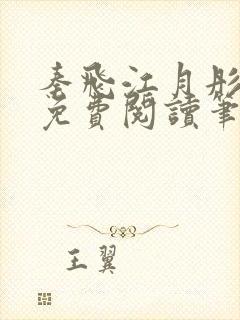 秦飛江月彤
免費閱讀筆
王翼